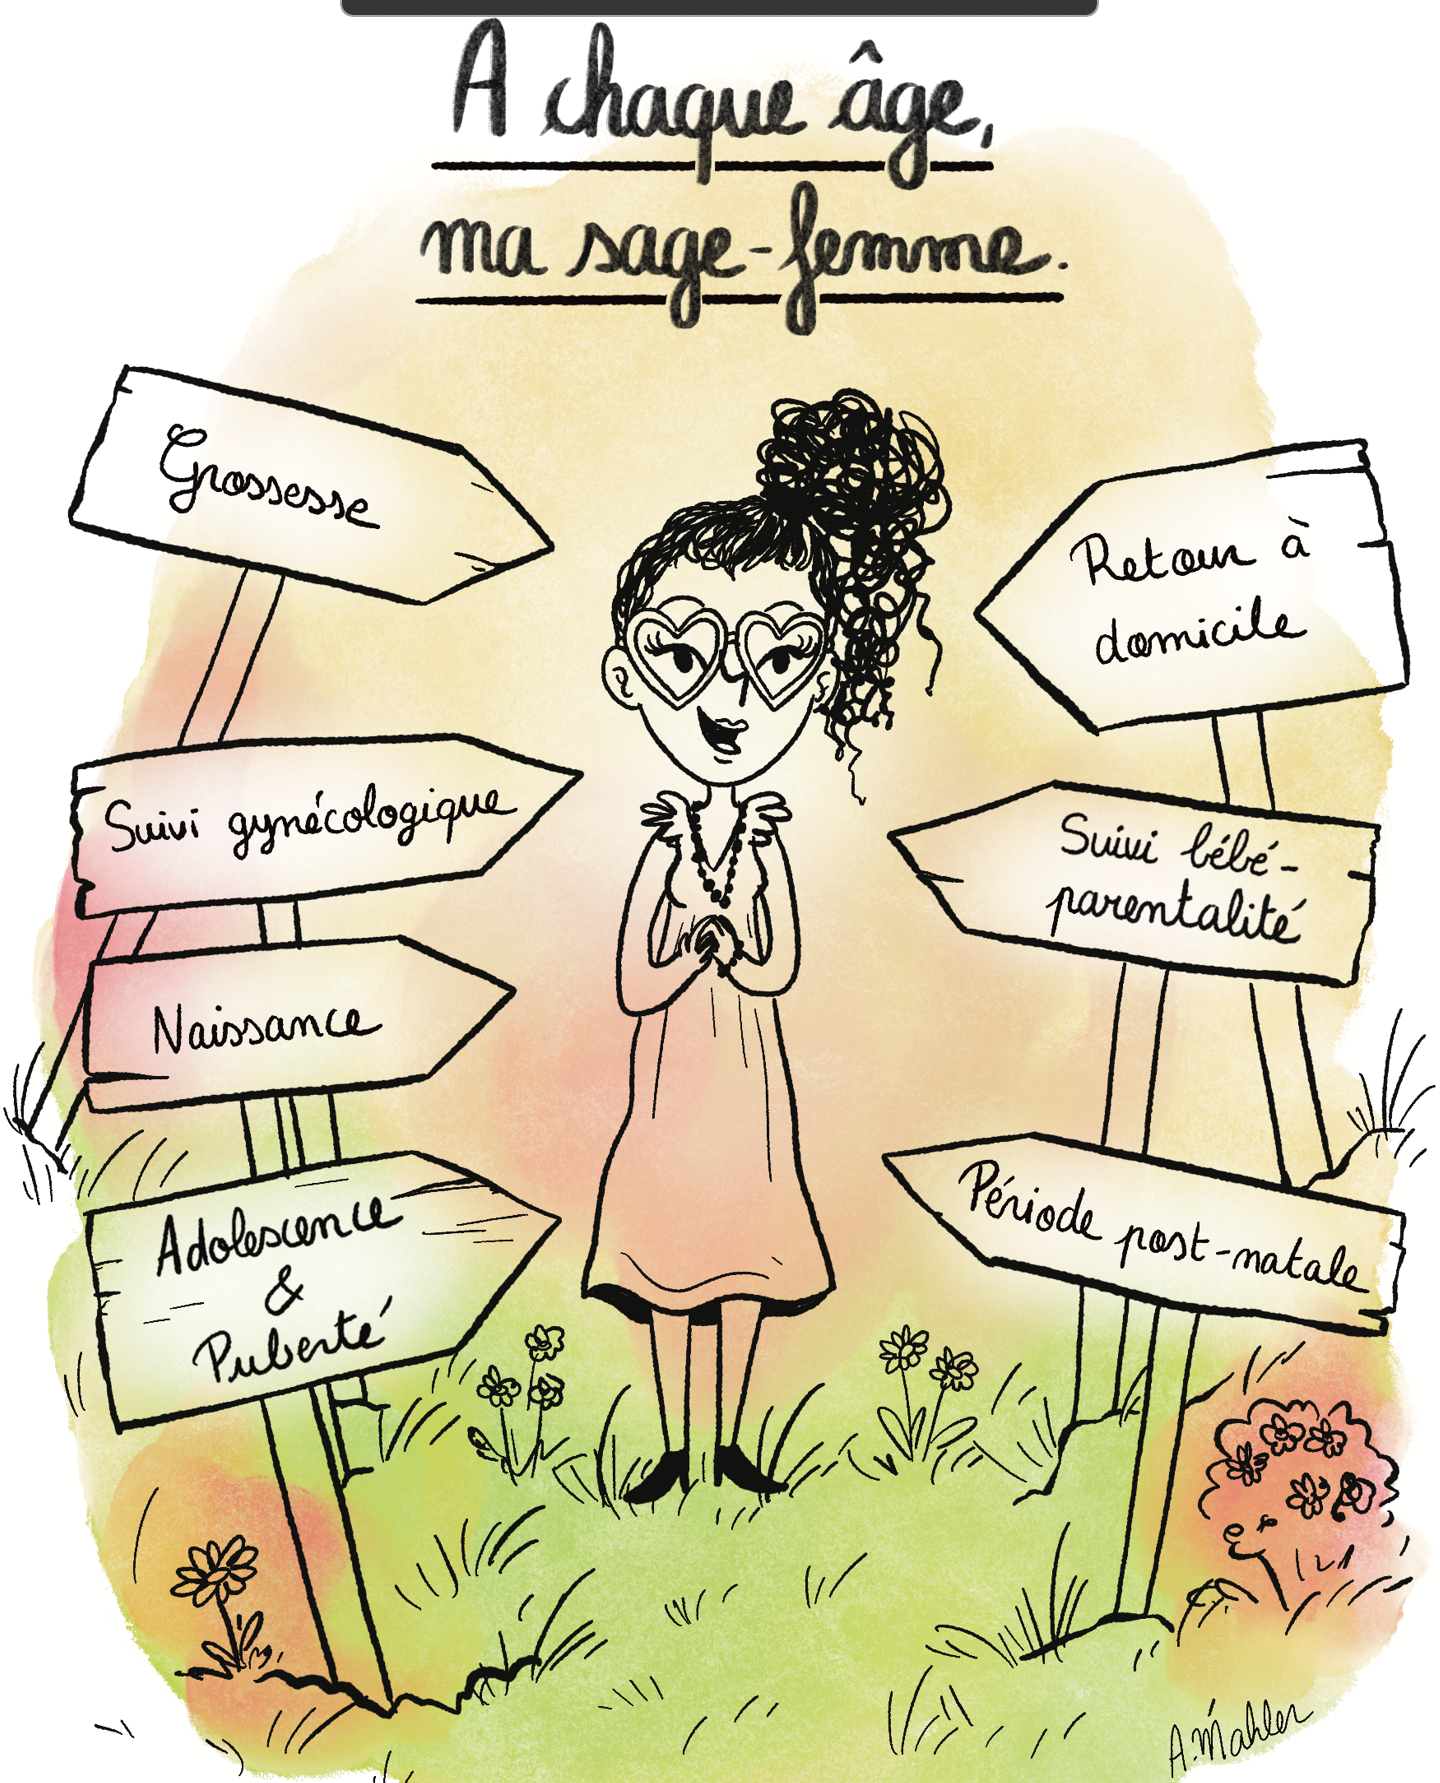 A chaque âge,
ma sage-femme.
Grossesse
Suivi gynécologique
Naissance
Adolescence
&
Puberté
Retour à
domicile
Suivi bébé-
parentalité
Période post-natale
A. Mahler